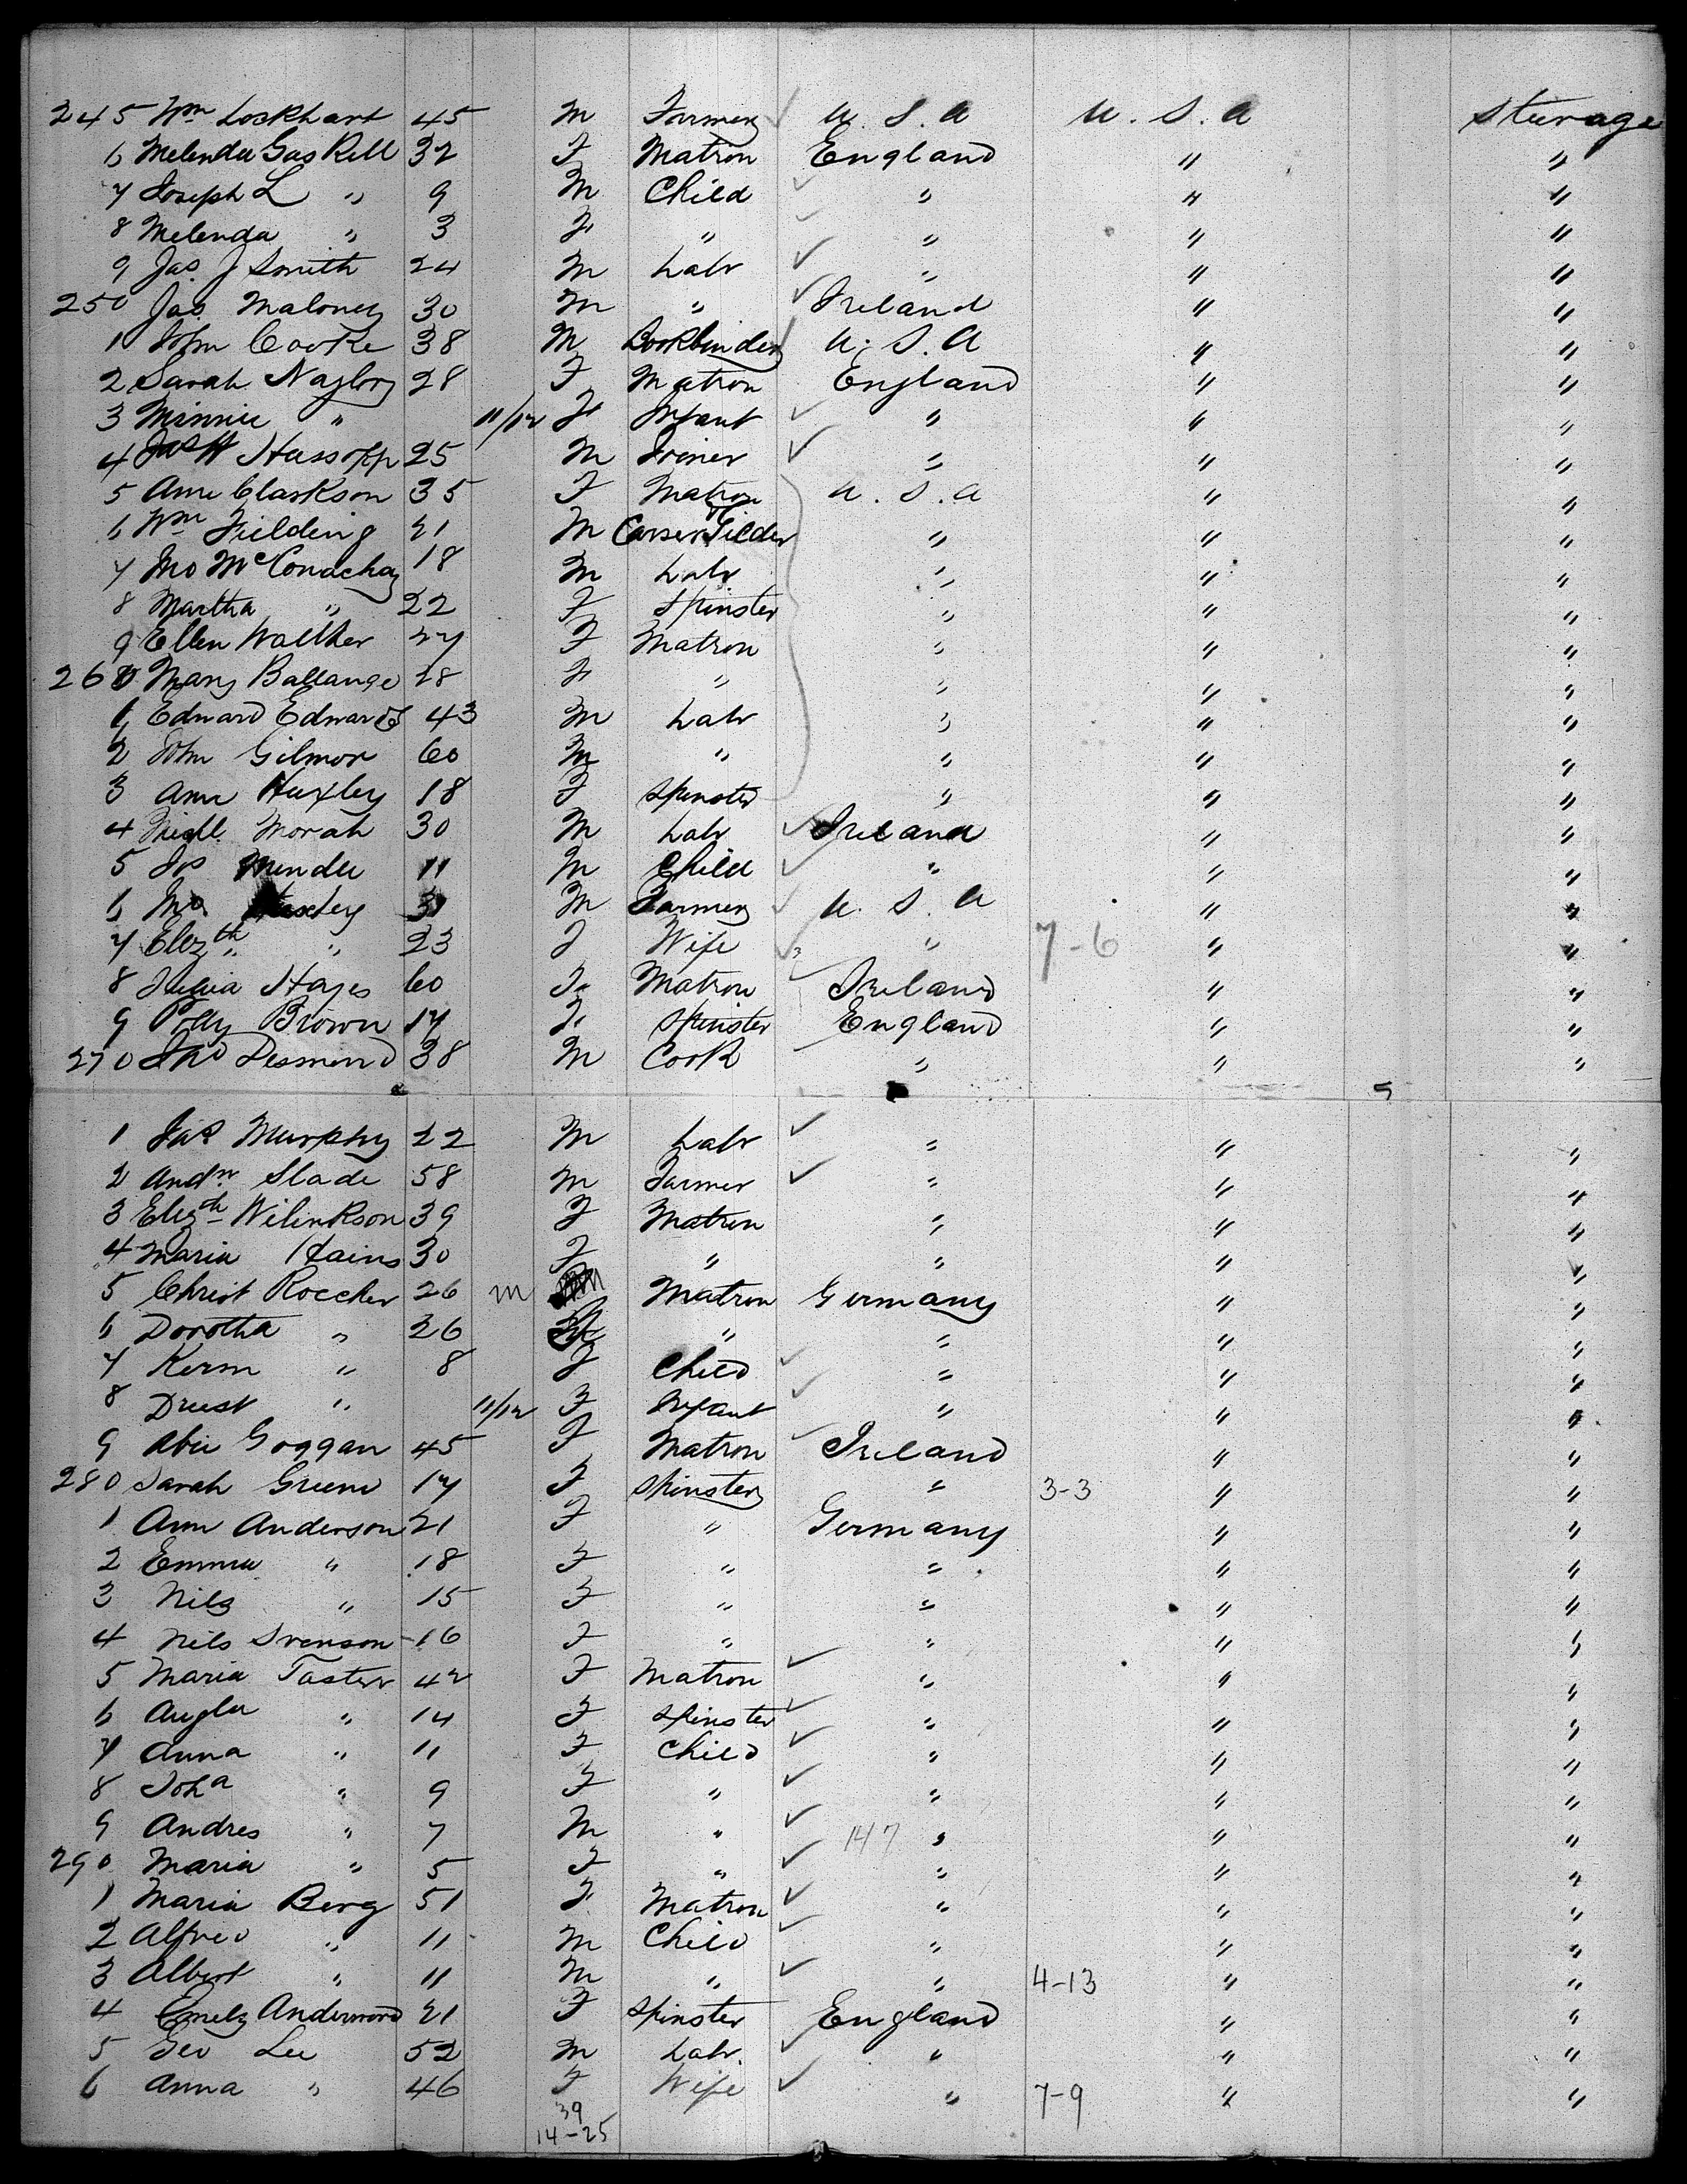 245 Wm Lockhart 45 M Farmer U. S. A U. S. A Steerage
6 Melenda Gaskell 32 F Matron England " "
7 Joseph L " 9 M Child " " "
8 Melenda " 3 F " " " "
9 Jas. J Smith 24 M Labr " " "
250 Jas. Maloney 30 M " Ireland " "
1 John Cooke 38 M Bookbinder U. S. A " "
2 Sarah Naylor 28 F Matron England " "
3 Minnie " 11/12 F Infant " " "
4 Hassopp 25 M Joiner " " "
5 Ann Clarkson 35 F Matron U. S. A " "
6 Wm Fielding 21 M Carver & Gilder " " "
7 Jno McConachay 18 M Labr " " "
8 Martha " 22 F Spinster " " "
9 Ellen Walther 27 F Matron " " "
260 Mary Ballange 28 F " " " "
1 Edward Edwards 43 M Labr " " "
2 John Gilmor 60 M " " " "
3 Ann Huxley 18 F Spinster " " "
4 Morah 30 M Labr Ireland " "
5 Jos 11 M Child " " "
6 Jno Huxley 31 M Farmer U. S. A " "
7 Elezth " 23 F Wife " 7-6 " "
8 Hayes 60 F Matron Ireland " "
9 Polly Brown 17 F Spinster England " "
270 Jno Desmond 38 M Cook " " "
1 Jas Murphy 22 M Labr " " "
2 Andw. Slade 58 M Farmer " " "
3 Elezth Wilinkson 39 F Matron " " "
4 Maria Hains 30 F " " " "
5 Christ Roecker 26 m Matron Germany " "
6 Dorotha " 26 F " " " "
7 Kerm " 8 F Child " " "
8 Drust " 11/12 F Infant " " "
9 Abie Goggan 45 F Matron Ireland " "
280 Sarah Greene 17 F Spinster " 3-3 " "
1 Ann Anderson 21 F " Germany " "
2 Emma " 18 F " " " "
3 Nils " 15 F " " " "
4 Nils Svenson 16 F " " " "
5 Maria Taster 42 F Matron " " "
6 Augla " 14 F Spinster " " "
7 Anna " 11 F Child " " "
8 Joha " 9 F " " " "
9 Andres " 7 M " 147 " " "
290 Maria " 5 F " " " "
1 Maria Berg 51 F Matron " " "
2 Alfred " 11 M Child " " "
3 Albert " 11 M " " 4-13 " "
4 Emely Anderword 21 F Spinster England " "
5 Geo Lee 52 M Labr. " " "
6 Anna " 46 F Wife " 7-9 " "
39
14-25